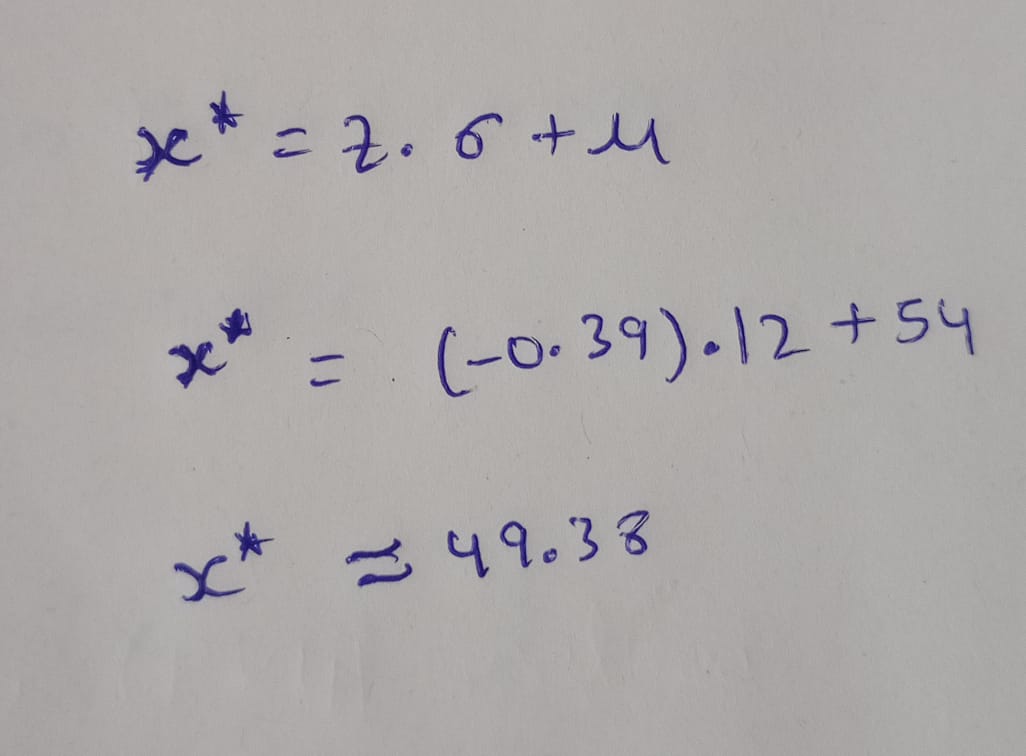 x* = z. σ + μ
x* = (-0.39).12 + 54
x* ≈ 49.38